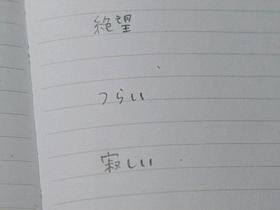 絶望
つらい
寂しい